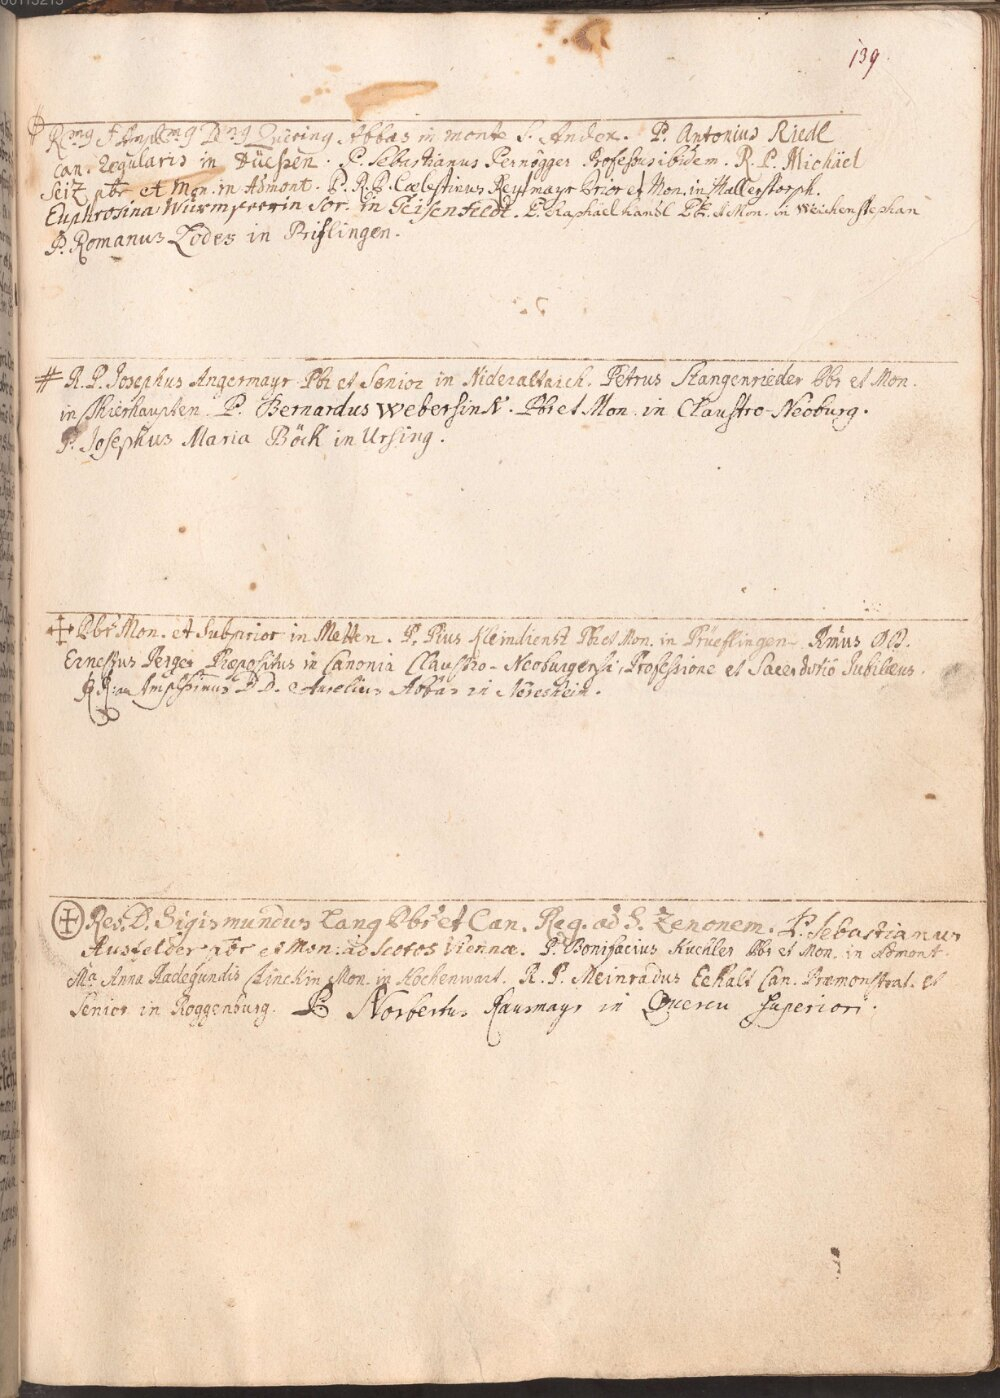 139
R.mg et Ampl.mg D.ng Quiring Abbas in monte S. Andex. P. Antonius Riedl
Can. Regularis in Düeßen. P. Sebastianus Pernögger Professus ibidem. R. P. Michael
Seiz pbr et Mon. in Admont. P. R. P. Cœlestinus Reylmayr Prior et Mon. in Mallerstorph.
Euphrosina Wurm Sor. in Geisenfeldt. P. Raphael handl Pbr. et Mon. in Weichenstephan
P. Romanus Zodes in Priflingen.
# R. P. Josephus Angermayr Pbr et Senior in Nideraltaich. Petrus Stangenrieder Pbr et Mon.
in Thierhaupten. P. Bernardus Webersink. Pbr et Mon. in Claustro-Neoburg.
P. Josephus Maria Böck in Ursing.
Pbr Mon. et Subprior in Metten. P. Pius Kleindienst Pbr et Mon. in Prüeflingen. Rmus DD.
Ernestus Perger Præpositus in Canonia Claustro-Neoburgensi, Professione et Sacerdotio Jubilæus.
Amplissimus D. D. Aurelius Abbas in Neresheim.
Rev. D. Sigismundus Lang Pbr et Can. Reg. ad S. Zenonem. P. Sebastianus
Ausfelder pbr et Mon. ad Scotos Viennæ. P. Bonifacius Kuchler Pbr et Mon. in Admont.
Ma Anna Radegundis Minckin Mon. in Hochenwart. R. P. Meinradus Eckalt Can. Præmonstrat. et
Senior in Roggenburg. P. Norbertus Rausmayr in Quercu Superiori.